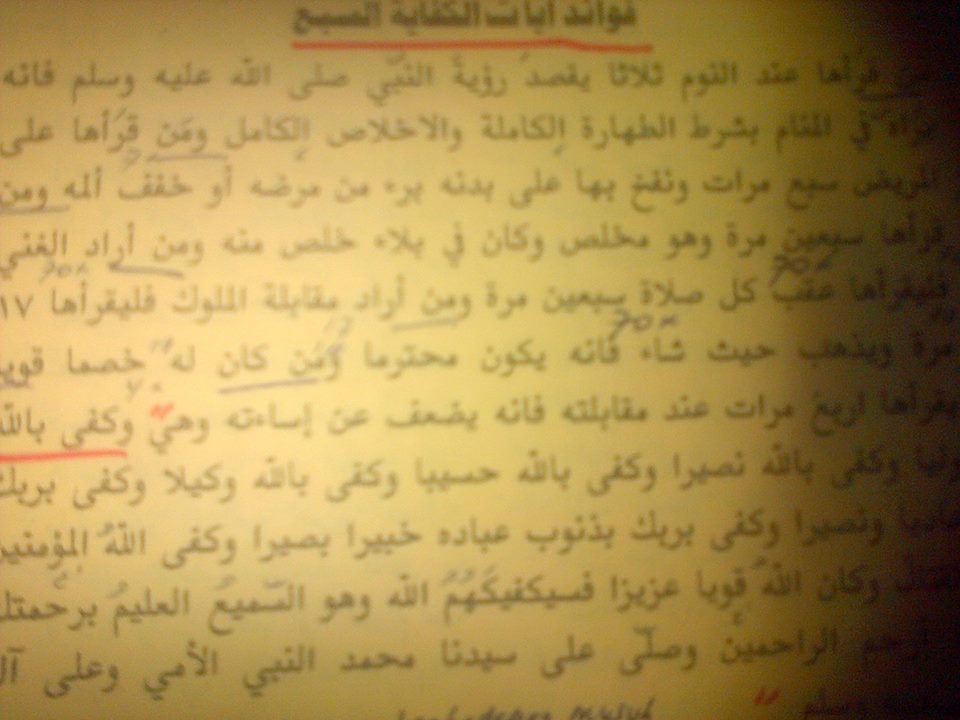 فوائد آيات الكفاية السبع
من قرأها عند النوم ثلاثا يقصد رؤية النبّي صلى الله عليه وسلم فانه
يراه في المنام بشرط الطهارة الكاملة والاخلاص الكامل ومَن قرَأها على
المريض سبع مرات ونفخ بها على بدنه برء من مرضه أو خفف ألمه ومن
قرأها سبعين مرة وهو مخلص وكان في بلاء خلص منه ومن أراد الغني
70x 70x
فليقرأها عقب كل صلاة سبعين مرة ومن أراد مقابلة الملوك فليقرأها ١٧
70x
مرة ويذهب حيث شاء فانه يكون محترما ومَن كان له خصما قويا
يقرأها اربع مرات عند مقابلته فانه يضعف عن إساءته وهي وكفى بالله
وليا وكفى بالله نصيرا وكفى بالله حسيبا وكفى بالله وكيلا وكفى بربك
هاديا ونصيرا وكفى بربك بذنوب عباده خبيرا بصيرا وكفى اللهُ المؤمنين
القتال وكان اللهُ قويا عزيزا فسيكفيكَهُمُ الله وهو السّميعُ العليمُ برحمتك
أرحم الراحمين وصلّى على سيدنا محمد النبي الأمي وعلى آل
وسلم